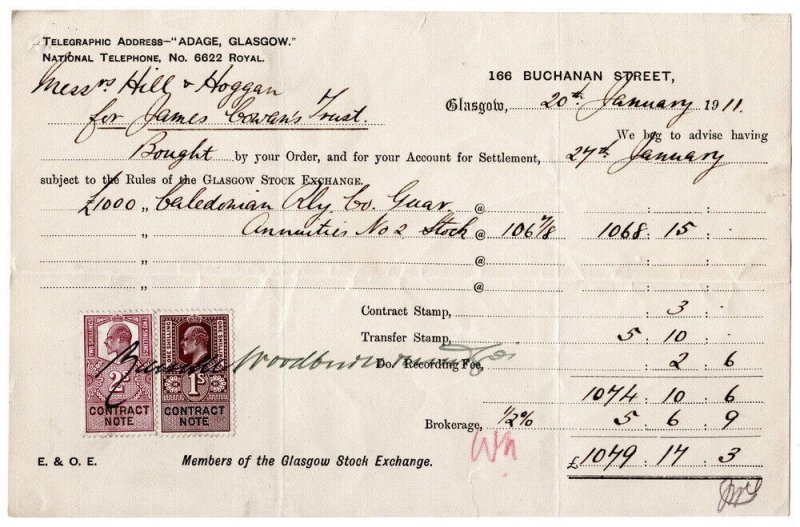 TELEGRAPHIC ADDRESS—"ADAGE, GLASGOW."
NATIONAL TELEPHONE, No. 6622 ROYAL.
166 BUCHANAN STREET,
Messrs Hill & Hoggan
Glasgow, 20th January 1911.
for James Cowan's Trust.
We beg to advise having
Bought by your Order, and for your Account for Settlement, 27th January
subject to the Rules of the GLASGOW STOCK EXCHANGE.
£1000 „ Caledonian Rly. Co. Guar. @
„ Annuities No 2 Stock @ 106 7/8 1068 : 15 :
„ @ : :
„ @ : :
Contract Stamp, : 3 :
Transfer Stamp, 5 : 10 :
Do. Recording Fee, : 2 : 6
1074 : 10 : 6
Brokerage, 1/2% 5 : 6 : 9
£1079 : 17 : 3
TWO SHILLINGS
2S
CONTRACT
NOTE
ONE SHILLING
1S
CONTRACT
NOTE
E. & O. E. Members of the Glasgow Stock Exchange.